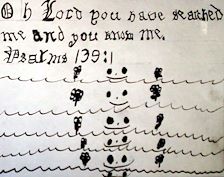 Oh Lord you have searched
me and you know me.
Psalms 139:1